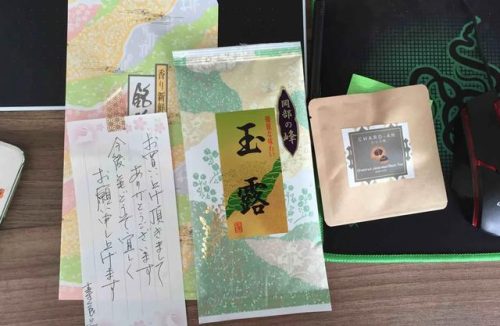 香り新
銘
お買い上げ頂きまして
ありがとうございます
今後どうぞ宜しく
お願い申し上げます
岡部の峰
玉露
Japanese Black Tea